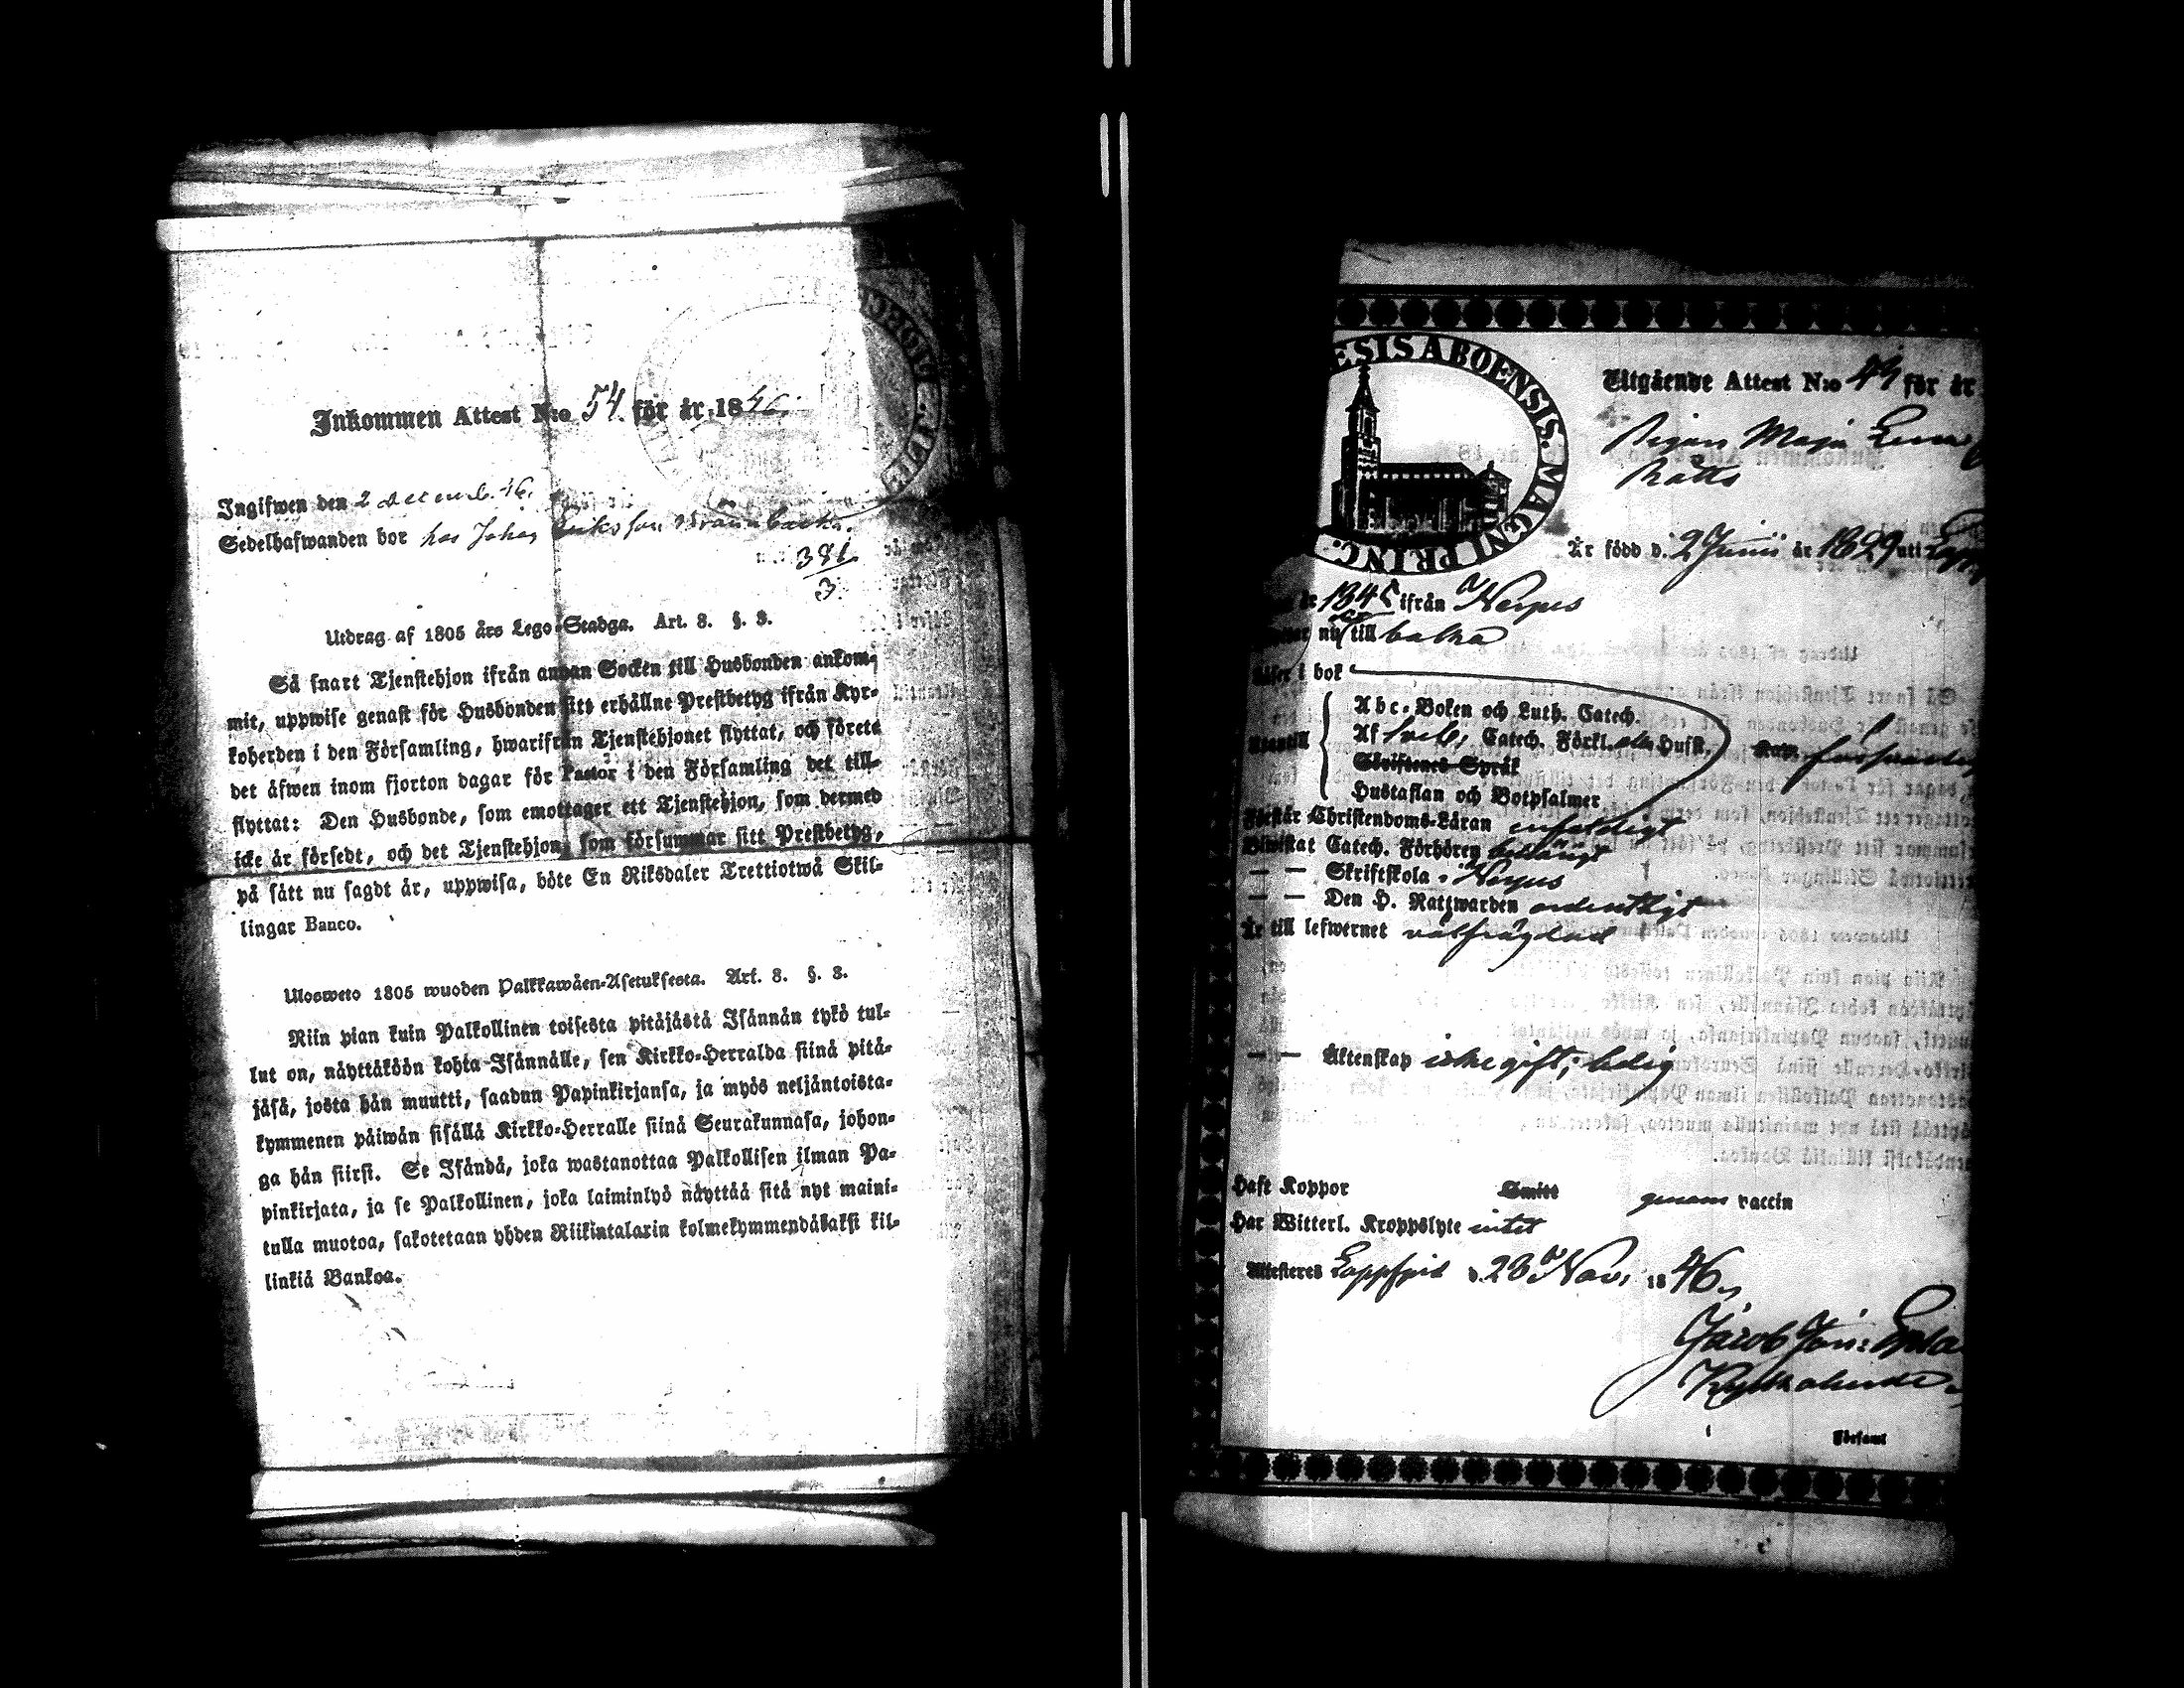 Inkommen Attest N:o 54 för år 1846.
Ingifwen den 2 decemb. 46.
Sedelhafwanden bor hos Johan Eriksson Brännbacka.
381
3.
Utdrag af 1805 års Lego-Stadga. Art. 8. §. 3.
Så snart Tjenstehjon ifrån annan Socken till Husbonden ankom-
mit, uppwise genast för Husbonden sitt erhållne Prestbetyg ifrån Kyr-
koherden i den Församling, hwarifrån Tjenstehjonet flyttat, och förete
det äfwen inom fjorton dagar för Pastor i den Församling det till-
flyttat: Den Husbonde, som emottager ett Tjenstehjon, som dermed
icke är försedt, och det Tjenstehjon, som försummar sitt Prestbetyg,
på sätt nu sagdt är, uppwisa, böte En Riksdaler Trettiotwå Skil-
lingar Banco.
Ulosweto 1805 wuoden Palkkawäen-Asetuksesta. Art. 8. §. 3.
Niin pian kuin Palkollinen toisesta pitäjästä Isännän tykö tul-
lut on, näyttäköön kohta Isännälle, sen Kirkko-Herralda siinä pitä-
jäsä, josta hän muutti, saadun Papinkirjansa, ja myös neljäntoista-
kymmenen päiwän sisällä Kirkko-Herralle siinä Seurakunnasa, johon-
ga hän siirsi. Se Isändä, joka wastanottaa Palkollisen ilman Pa-
pinkirjata, ja se Palkollinen, joka laiminlyö näyttää sitä nyt maini-
tulla muotoa, sakotetaan yhden Riikintalarin kolmekymmendäkaksi kil-
linkiä Bankoa.
ESIS ABOENSIS. MAGNI PRINC.
Utgående Attest N:o 44 för år
Pigan Maja Lena
Rätts
Är född d. 2 Junii år 1829 uti
år 1845 ifrån Nerpes
nu till baka
Läser i bok
Utantill
Abc-Boken och Luth. Catech.
Af Sveb. Catech. Förkl. Husst.
Skriftenes Språk
Hustaflan och Botpsalmer
Förstår Christendoms-Läran enfaldigt
Biwistat Catech. Förhören
— — Skriftskola i Nerpes
— — Den H. Nattwarden ordentligt
Är till lefwernet välfrägdad
— — Äktenskap icke gift; ledig
Haft Koppor Smitt genom vaccin
Har Witterl. Kroppslyte intet
Attesteras Lappfjerd d. 28 Nov. 1846,
Jacob Jon:
Kyrkoherde
Församl